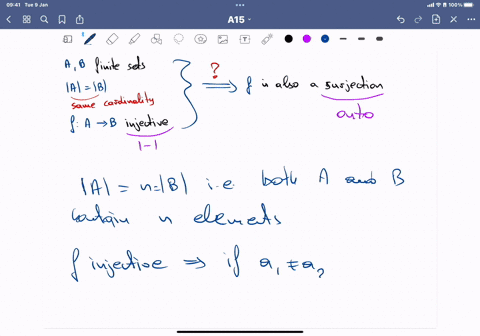 09:41 Tue 9 Jan
A15
100%
A, B finite sets
|A|=|B|
same cardinality
f: A → B injective
1-1
?
⟹ f is also a surjection
onto
|A| = n = |B| i.e. both A and B
contain n elements
f injective ⟹ if a₁ ≠ a₂